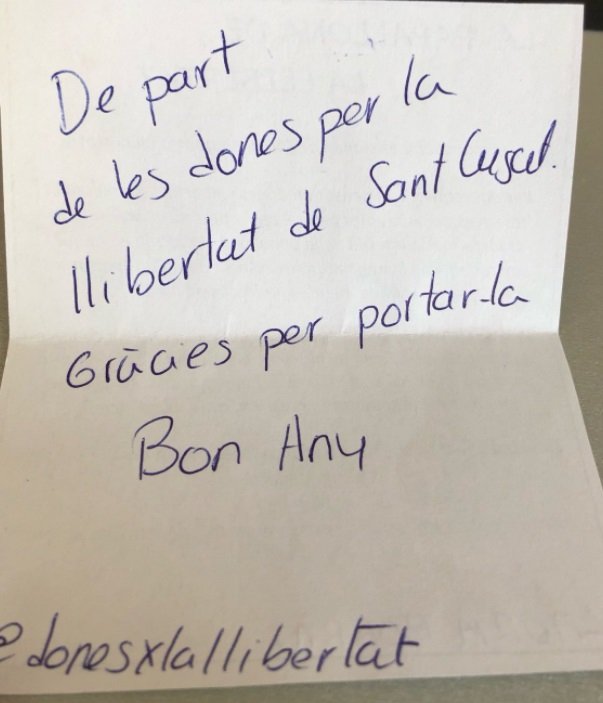 De part
de les dones per la
llibertat de Sant Cugat.
Gràcies per portar-la
Bon Any
@donesxlallibertat